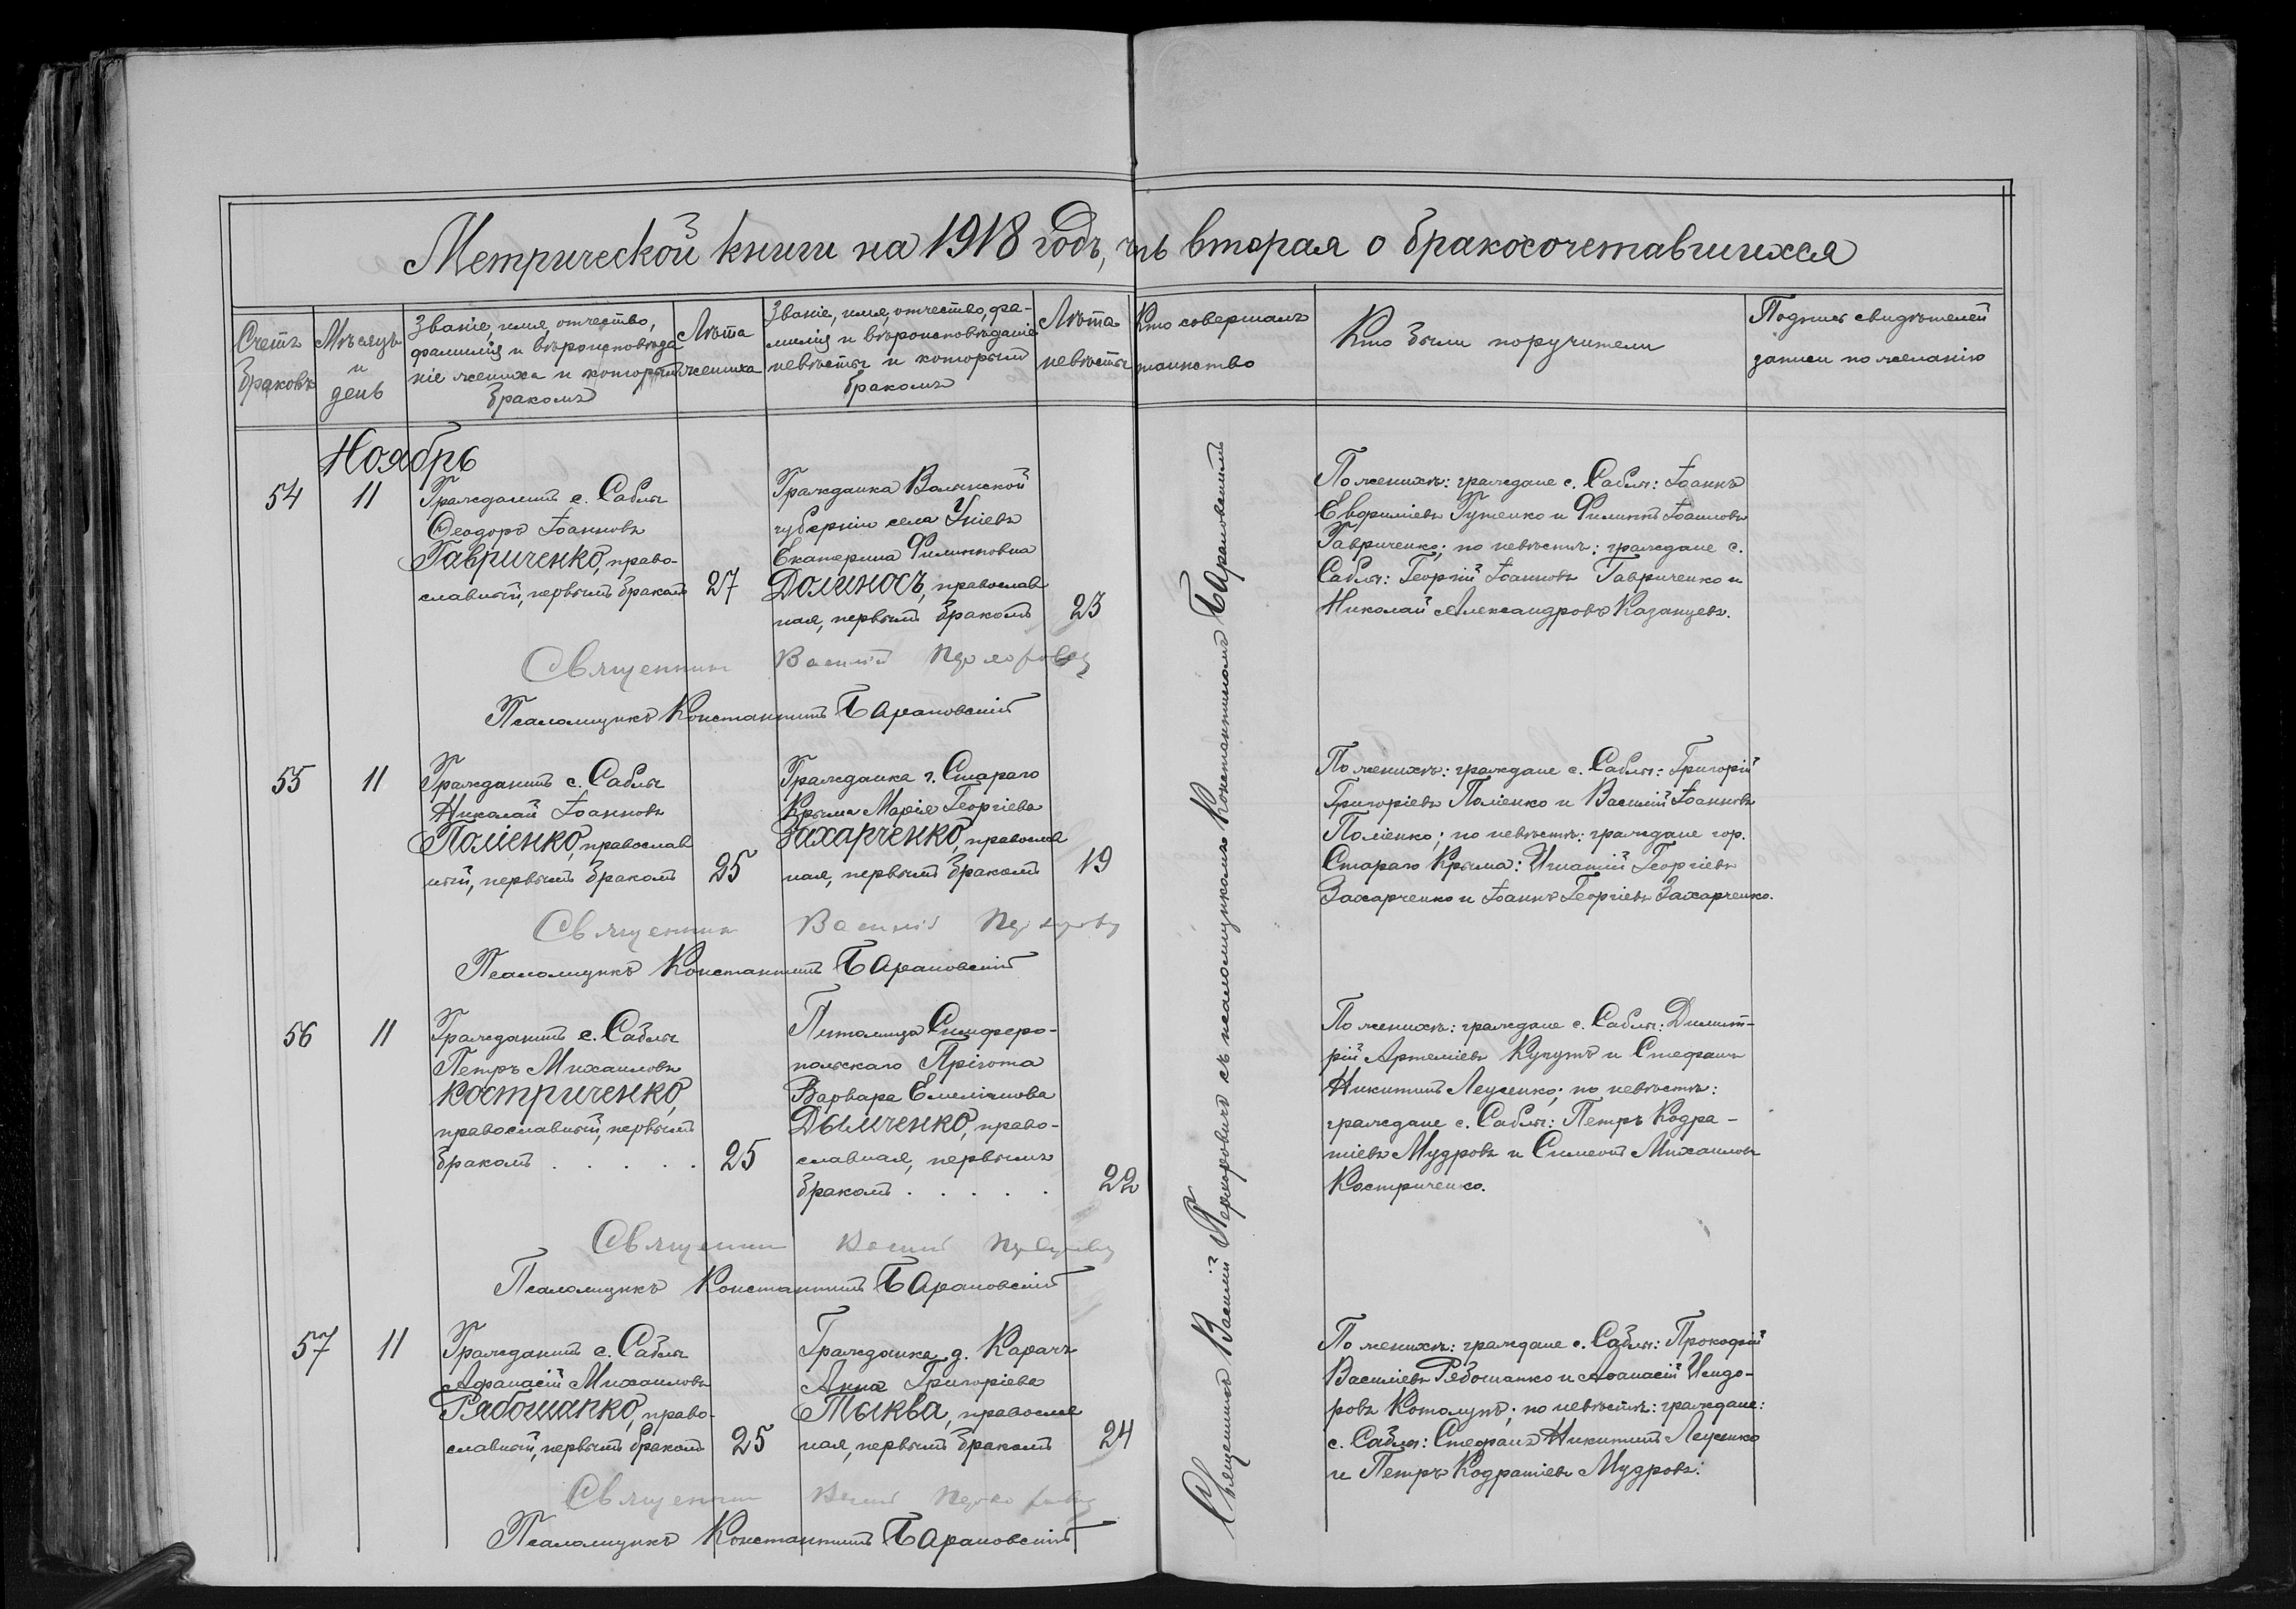 Метрической книги на 1918 годъ, чть вторая о бракосочетавшихся
Счетъ браковъ
Мѣсяцъ и день
Званіе, имя, отчество,
фамилія и вѣроисповѣда
ніе жениха и которымъ
бракомъ
Лѣта жениха
Званіе, имя, отчество, фа-
милія и вѣроисповѣданіе
невѣсты и которым
бракомъ
Лѣта невѣсты
Кто совершалъ таинство
Кто были поручители
Подпись свидѣтелей
записи по желанію
Ноябрь
54
11
Гражданинъ с. Саблы
Ѳеодоръ Іоанновъ
Гавриченко, право-
славный, первымъ бракомъ
27
Гражданка Волынской
губерніи села Уніевъ
Екатерина Филипповна
Долиносъ, православ
ная, первымъ бракомъ
23
По женихѣ: граждане с. Саблы: Іоаннъ
Евфиміевъ Гуменко и Филиппъ Іоанновъ
Гавриченко; по невѣстѣ: граждане с.
Саблы: Георгій Іоанновъ Гавриченко и
Николай Александровъ Казанцевъ.
Священник Василій
Псаломщикъ Константинъ Барановскій
55
11
Гражданинъ с. Саблы
Николай Іоанновъ
Поліенко, православ
ный, первымъ бракомъ
25
Гражданка г. Стараго
Крыма Марія Георгіева
Захарченко, православ
ная, первымъ бракомъ
19
По женихѣ: граждане с. Саблы: Григорій
Григоріевъ Поліенко и Василій Іоанновъ
Поліенко; по невѣстѣ: граждане гор.
Стараго Крыма: Игнатій Георгіевъ
Захарченко и Іоаннъ Георгіевъ Захарченко.
Священник Василій
Псаломщикъ Константинъ Барановскій
56
11
Гражданинъ с. Саблы
Петръ Михаиловъ
Костриченко,
православный, первымъ
бракомъ . . . . .
25
Питомица Симферо-
польскаго Пріюта
Варвара Емеліанова
Дымченко, право-
славная, первымъ
бракомъ . . . . .
22
По женихѣ: граждане с. Саблы: Димит-
рій Артеміевъ и Стефанъ
Никитинъ Леусенко; по невѣстѣ:
граждане с. Саблы: Петръ Кодра-
тіевъ Мудровъ и Симеонъ Михаиловъ
Костриченко.
Священник Василій
Псаломщикъ Константинъ Барановскій
57
11
Гражданинъ с. Саблы
Афанасій Михаиловъ
Рябошапко, право-
славный, первымъ бракомъ
25
Гражданка д. Карачъ
Анна Григоріева
Тыква, православ
ная, первымъ бракомъ
24
По женихѣ: граждане с. Саблы: Прокофій
Василіевъ Рябошапко и Аѳанасій Исидо-
ровъ; по невѣстѣ: граждане:
с. Саблы: Стефанъ Никитинъ Леусенко
и Петръ Кодратіевъ Мудровъ.
Священник
Псаломщикъ Константинъ Барановскій
Священникъ Василій съ псаломщикомъ Константиномъ Барановскимъ